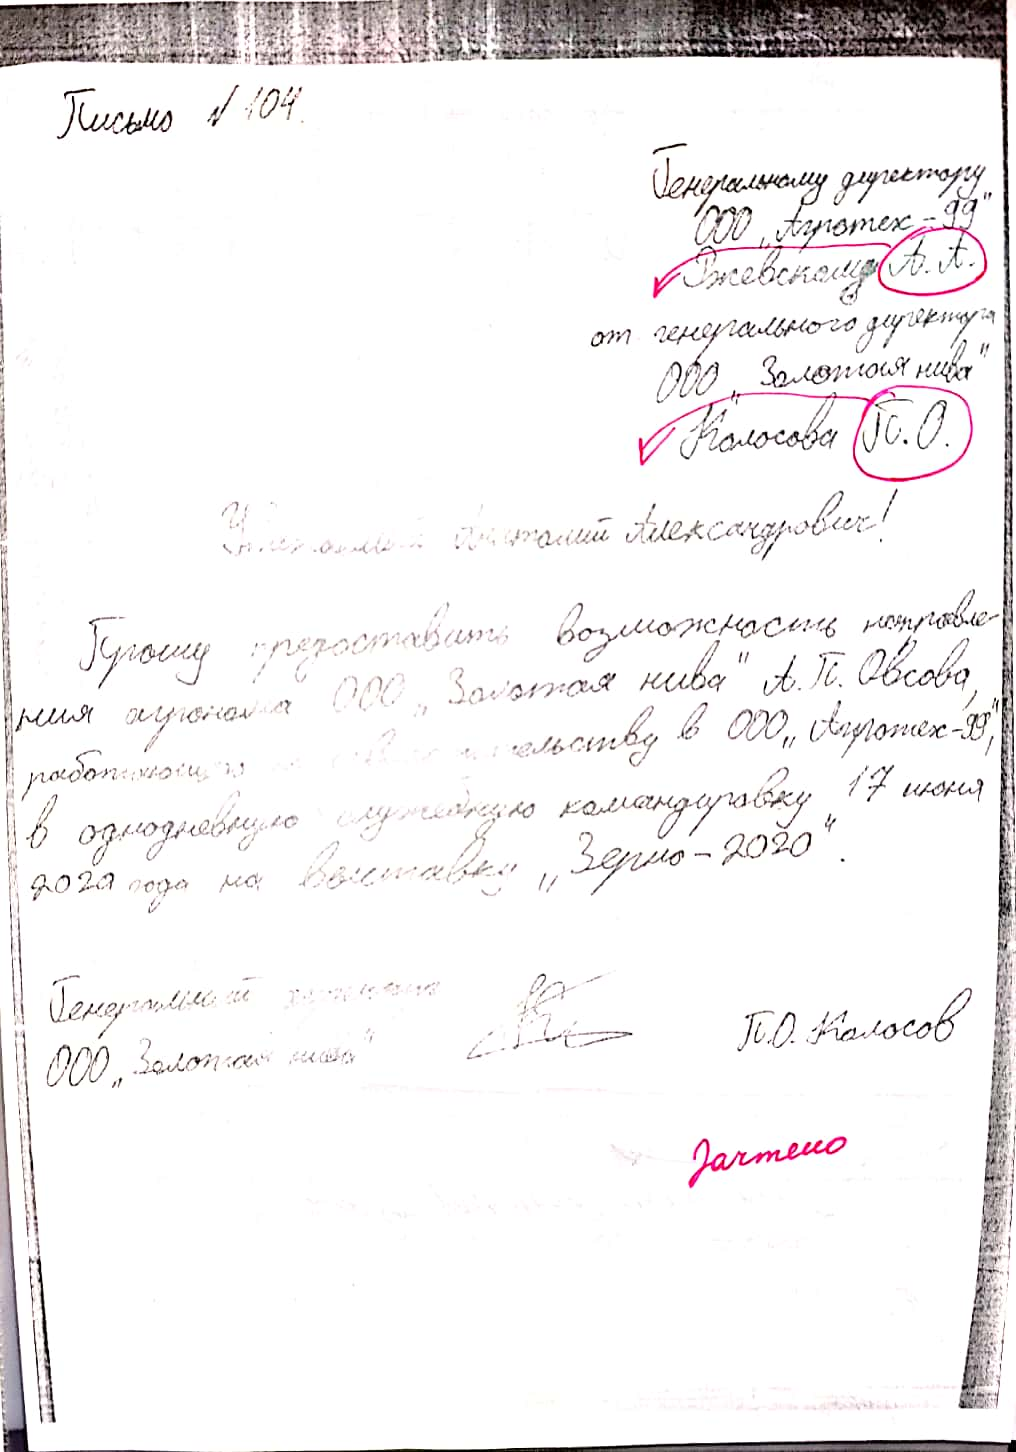 Письмо № 104.
Генеральному директору
ООО „Агротех-99"
Ржевскому А. А.
от генерального директора
ООО „Золотая нива"
Колосова П. О.
Уважаемый Анатолий Александрович!
Прошу предоставить возможность направле-
ния агронома ООО „Золотая нива" А. П. Овсова,
работающего по совместительству в ООО „Агротех-99",
в однодневную служебную командировку 17 июня
2020 года на выставку „Зерно-2020".
Генеральный директор
ООО „Золотая нива"
П.О. Колосов
Зачтено